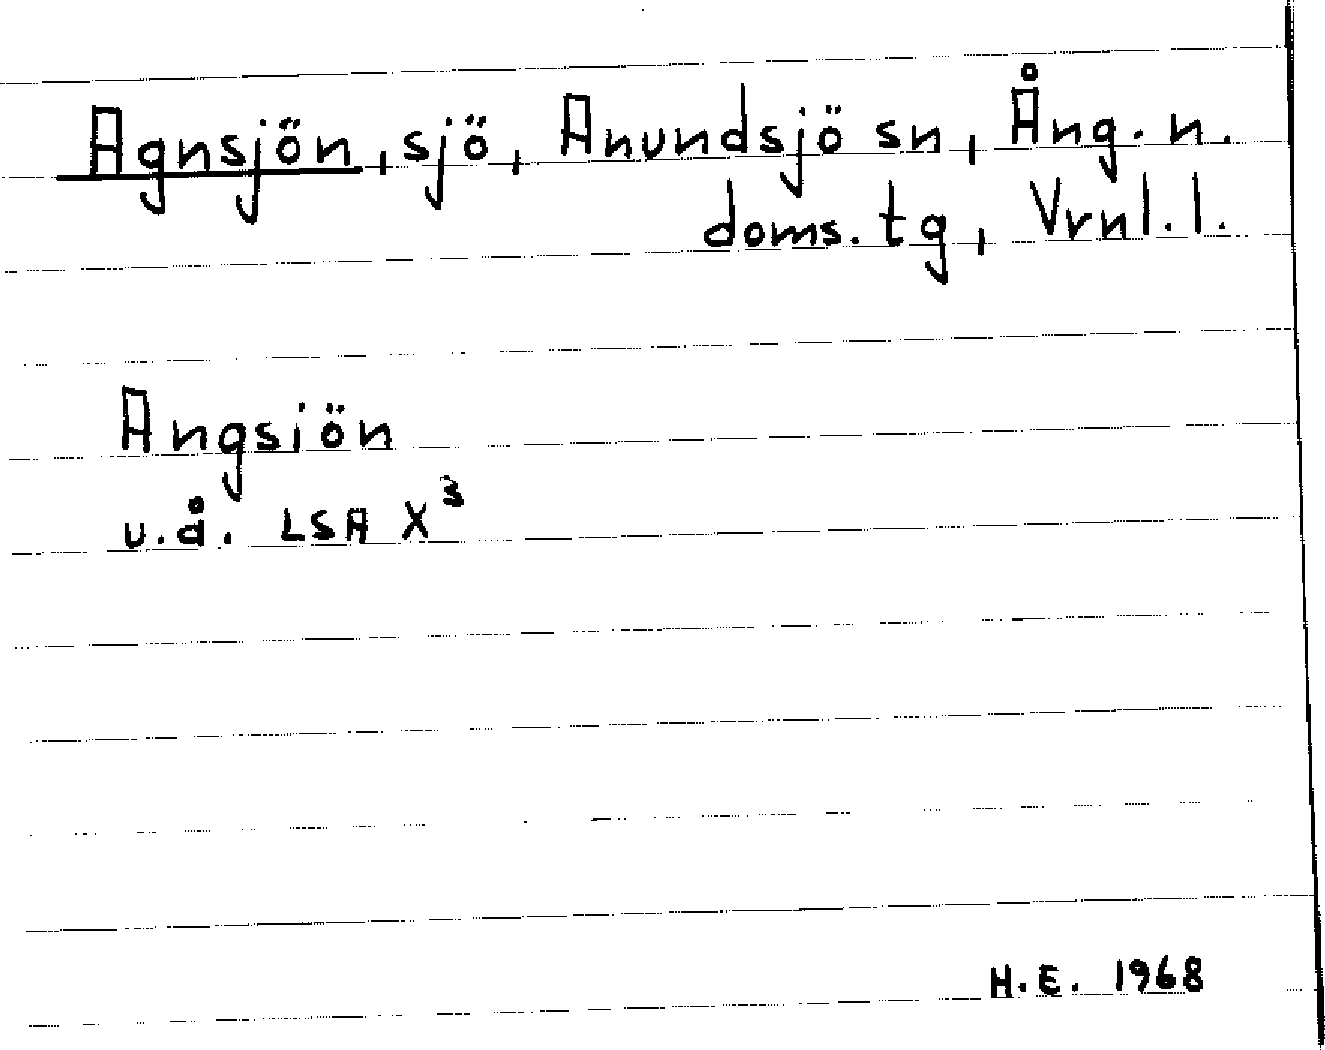 Agnsjön, sjö, Anundsjö sn, Ång. n.
doms. tg, Vrnl. l.
Angsiön
u.å. LSA X³
H.E. 1968